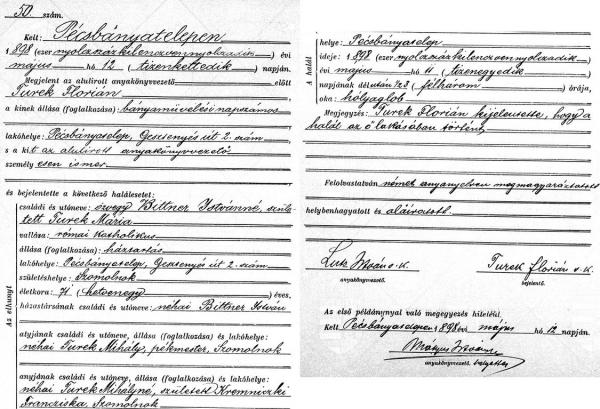 50. szám.
Kelt: Pécsbányatelepen
1898 (ezer nyolczszázkilenczvennyolczadik) évi
május hó 12 (tizenkettedik) napján.
Megjelent az alulirott anyakönyvvezető előtt
Turek Flórián
a kinek állása (foglalkozása): bányamüvelési napszámos
lakóhelye: Pécsbányatelep, Gesztenyés út 2. szám
s a kit az alulirott anyakönyvvezető
személyesen ismer
és bejelentette a következő halálesetet:
Az elhunyt
családi és utóneve: özvegy Bittner Istvánné, szüle-
tett Turek Mária
vallása: római katholikus
állása (foglalkozása): háztartás
lakóhelye: Pécsbányatelep, Gesztenyés út 2. szám.
születéshelye: Szomolnok
életkora: 71 (hetvenegy) éves.
házastársának családi és utóneve: néhai Bittner István
atyjának családi és utóneve, állása (foglalkozása) és lakóhelye:
néhai Turek Mihály, pékmester, Szomolnok
anyjának családi és utóneve, állása (foglalkozása) és lakóhelye:
néhai Turek Mihályné, született Kremniczki
Francziska, Szomolnok
A halál
helye: Pécsbányatelep
ideje: 1898 (ezer nyolczszázkilenczvennyolczadik)
évi május hó 11 (tizenegyedik)
napjának délután 1/2 3 (félhárom) órája,
oka: hólyaglob
Megjegyzés: Turek Flórián kijelentette, hogy a
halál az ő lakásában történt
Felolvastatván német anyanyelven megmagyaráztatott
helybenhagyatott és aláiratott.
Lutz István s.k.
anyakönyvvezető.
Turek Flórián s.k.
bejelentő.
Az első példánynyal való megegyezés hiteléül.
Kelt Pécsbányatelepen 1898 évi május hó 12 napján.
István
anyakönyvvezető helyettes